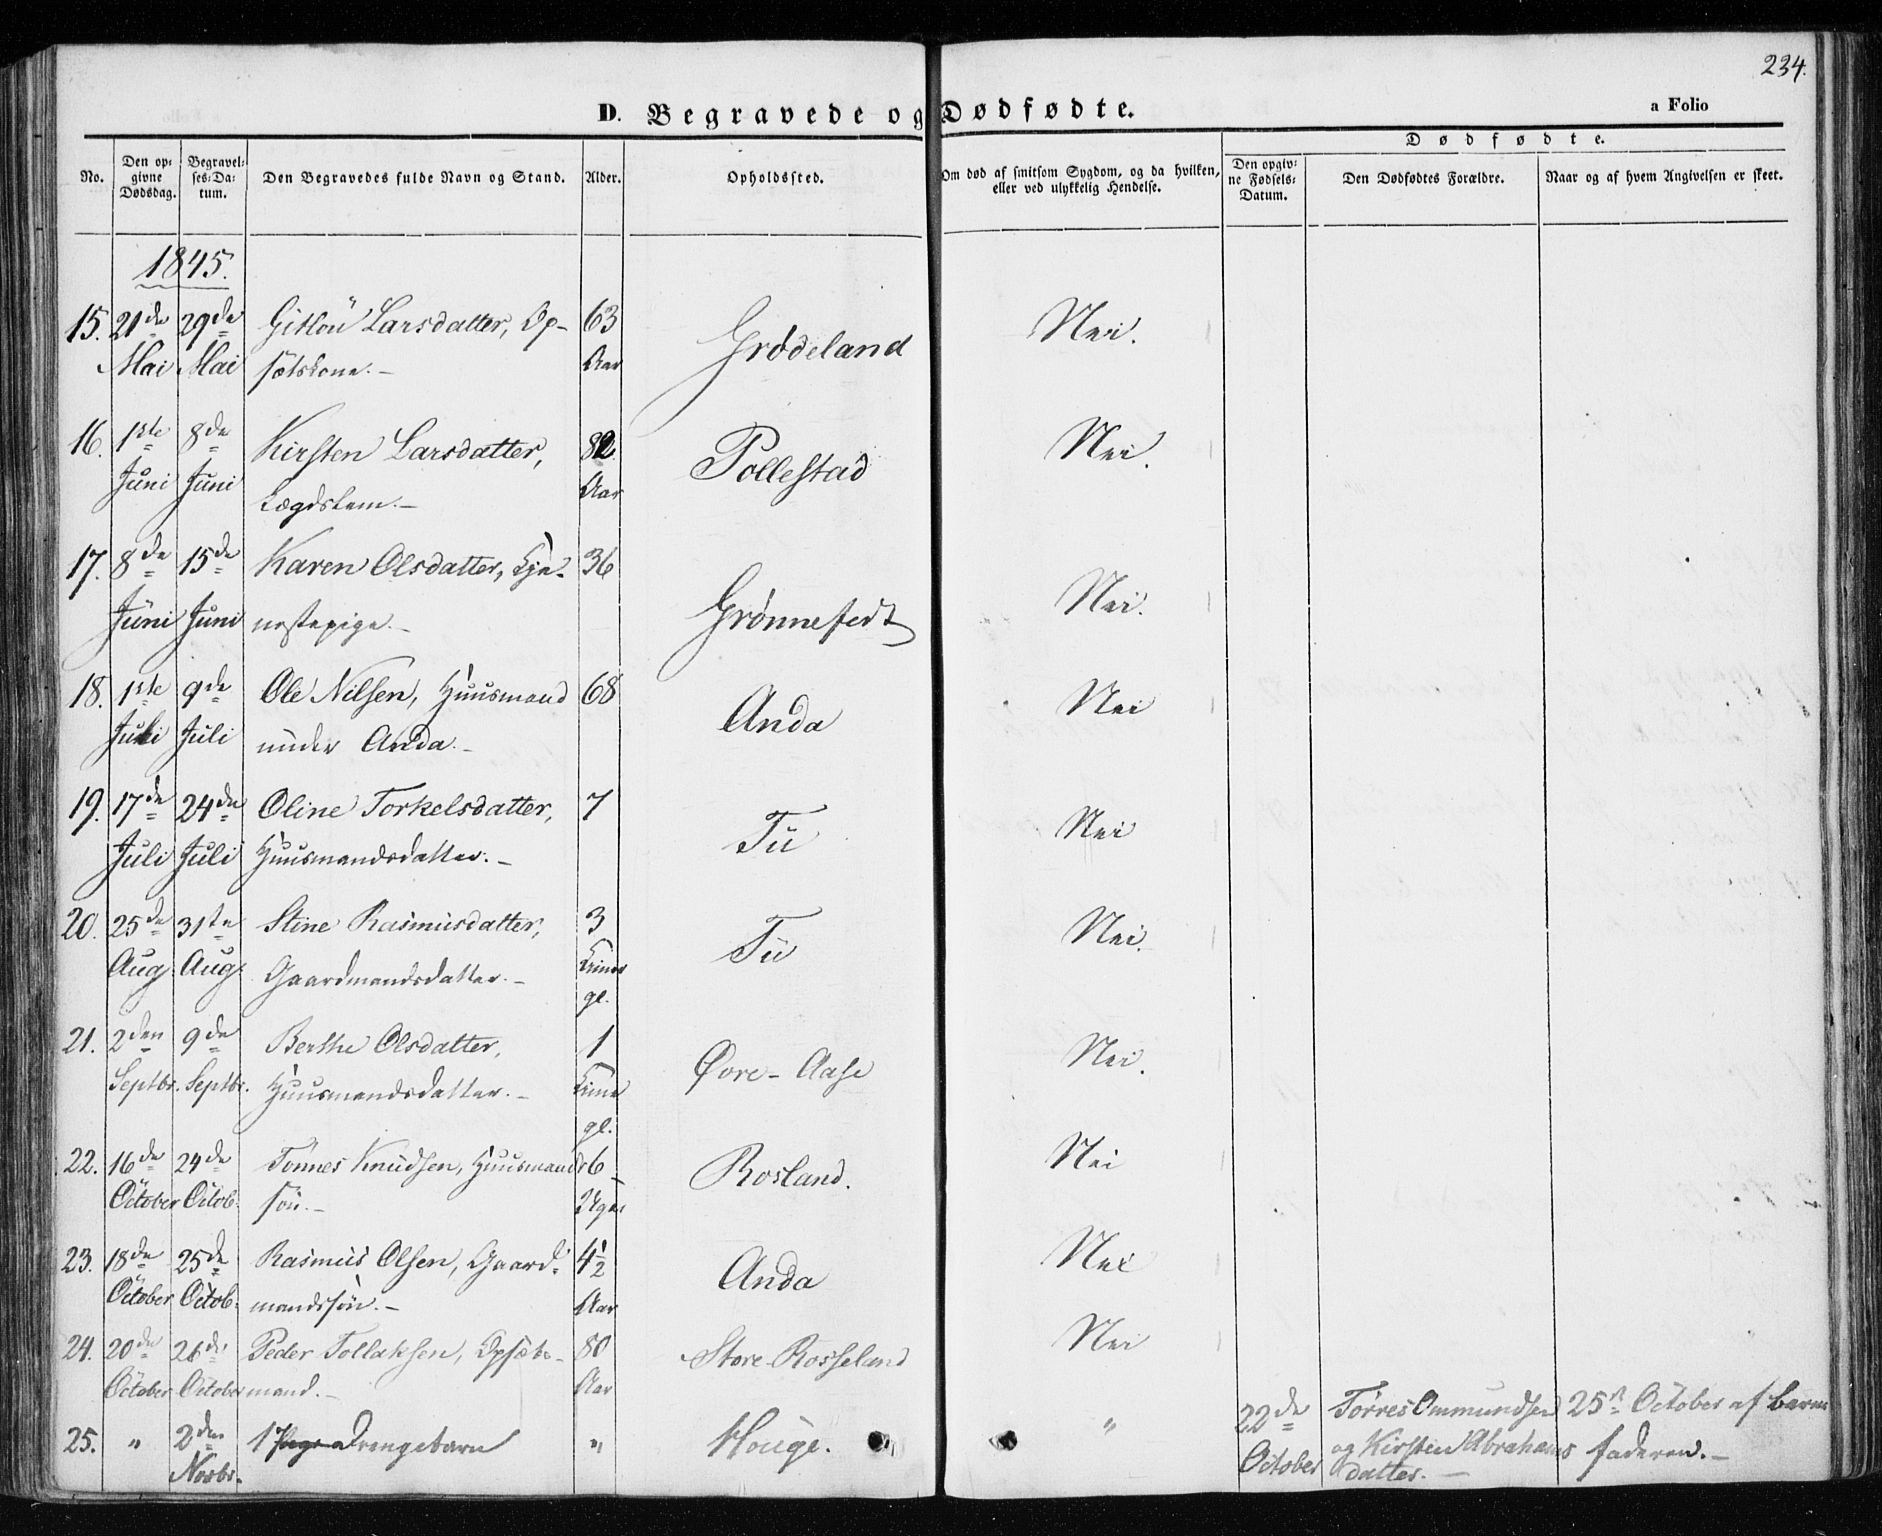 234.
D. Begravede og Dødfødte.
a Folio
Dødfødte.
No.
Den op-
givne
Dødsdag.
Begravel-
ses-Da-
tum.
Den Begravedes fulde Navn og Stand.
Alder.
Opholdssted.
Om død af smitsom Sygdom, og da hvilken,
eller ved ulykkelig Hendelse.
Den opgiv-
ne Fødsels-
Datum.
Den Dødfødtes Forældre.
Naar og af hvem Angivelsen er skeet.
1845.
15. 21de 29de Gitlou Larsdatter, Op- 63 Grødeland Nei.
Mai Mai sætskone.- Aar
16. 1ste 8de Kirsten Larsdatter, 82 Pollestad Nei.
Juni Juni Lægdslem.- Aar
17. 8de 15de Karen Olsdatter, Tje- 36 Grønnefert Nei.
Juni Juni nestepige.-
18. 1ste 9de Ole Nilsen, Huusmand 68 Anda Nei
Juli Juli under Anda.-
19. 17de 24de Oline Torkelsdatter, 7 Tu Nei
Juli Juli Huusmandsdatter.-
20. 25de 31te Stine Rasmusdatter, 3 Tu Nei.
Aug. Aug. Gaardmandsdatter.- Timer
gl.
21. 2den 9de Berthe Olsdatter, 1 Øvre-Aase Nei.
Septbr. Septbr. Huusmandsdatter.- Time
gl.
22. 16de 24de Tönnes Knudsen, Huusmands 6 Rosland. Nei
October Octob. søn.- Uger
23. 18de 25de Rasmus Olsen, Gaard- 4½ Anda Nei
October Octob. mandssøn.- Aar
24. 20de 26de Peder Tollaksen, Opsæts- 80 Store-Rosseland Nei
October October mand.- Aar
25. " 2den 1 Drengebarn " Houge. " 22de Tørres Ommundsen 25de October af barne
Novbr. October og Kirsten Abrahams faderen.-
datter.-